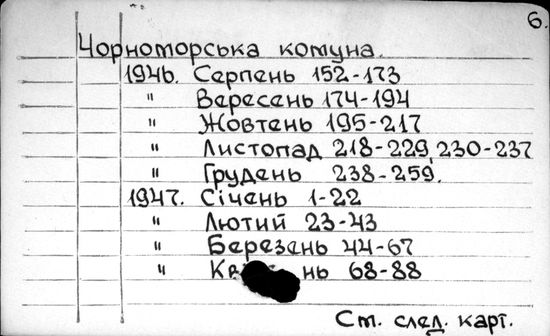 6.
Чорноморська комуна.
1946. Серпень 152-173
" Вересень 174-194
" Жовтень 195-217
" Листопад 218-229, 230-237
" Грудень 238-259.
1947. Січень 1-22
" Лютий 23-43
" Березень 44-67
" 68-88
Ст. след. карт.